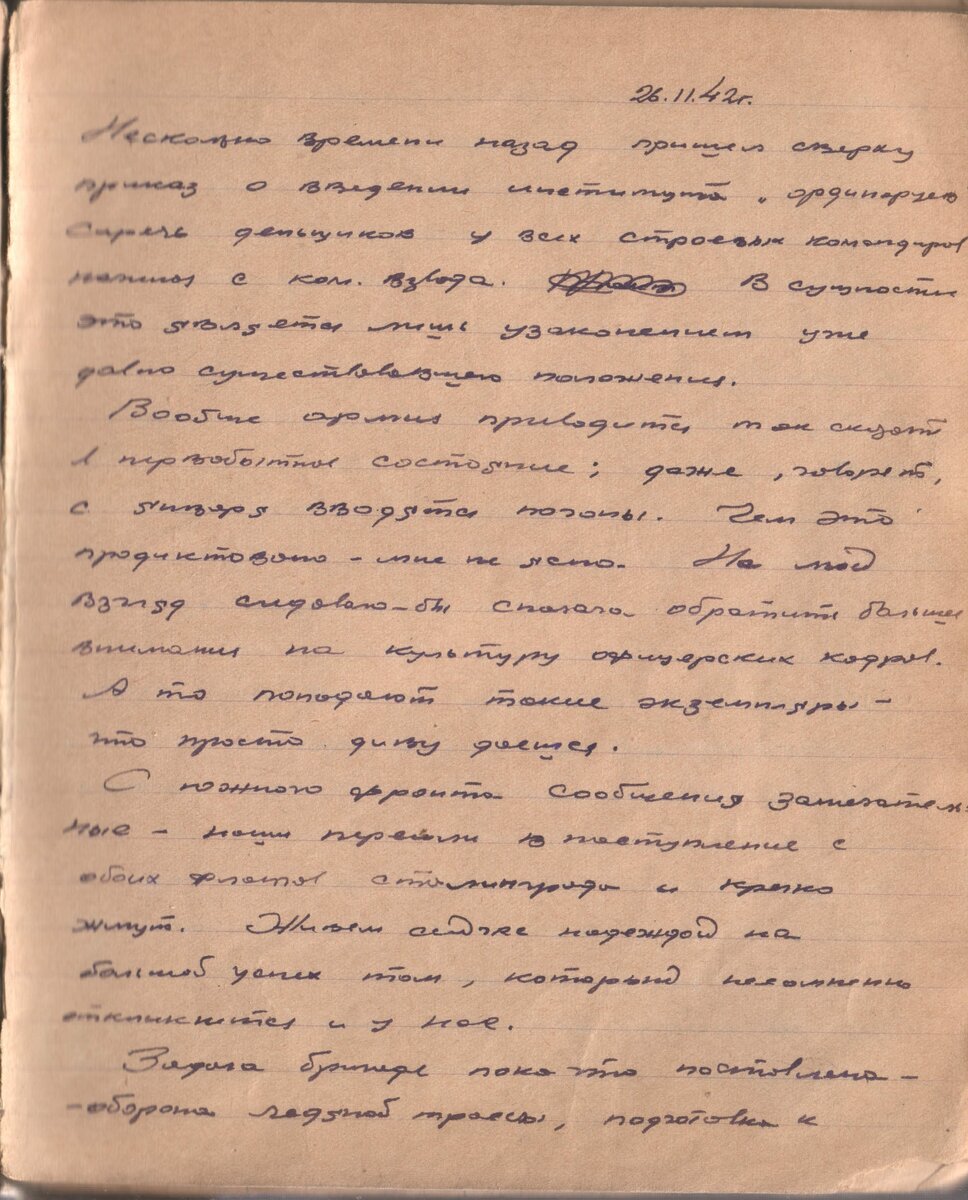 26.11.42г.
Несколько времени назад пришел сверху
приказ о введении института „ординарцев
сиречь денщиков у всех строевых командиров
начиная с ком. взвода. В сущности
это является лишь узаконением уже
давно существовавшего положения.
Вообще армия приводится так сказать
в первобытное состояние; даже, говорят,
с января вводятся погоны. Чем это
продиктовано - мне не ясно. На мой
взгляд следовало-бы сначала обратить больше
внимания на культуру офицерских кадров.
А то попадают такие экземпляры -
что просто диву даешся.
С южного фронта сообщения замечатель-
ные - наши перешли в наступление с
обоих флангов Сталинграда и крепко
жмут. Живем сейчас надеждой на
большой успех там, который несомненно
откликнится и у нас.
Задача бригаде пока что поставлена -
-оборона ледяной трассы, подготовка к